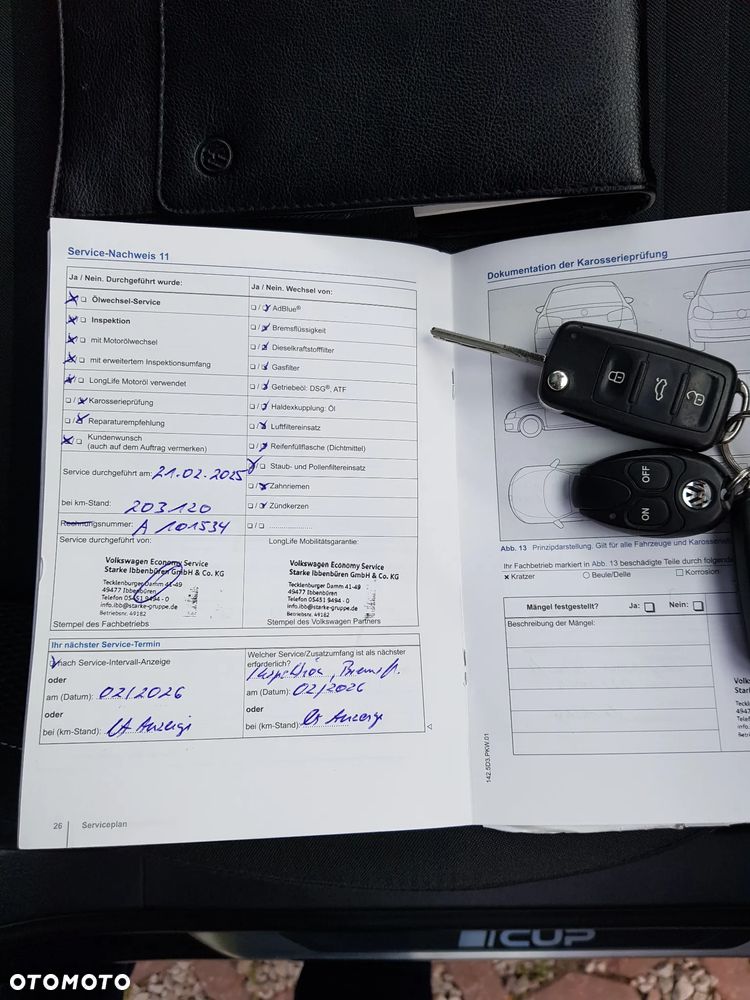 Service-Nachweis 11
Ja / Nein. Durchgeführt wurde:
Ölwechsel-Service
Inspektion
mit Motorölwechsel
mit erweitertem Inspektionsumfang
LongLife Motoröl verwendet
Karosserieprüfung
Reparaturempfehlung
Kundenwunsch
(auch auf dem Auftrag vermerken)
Service durchgeführt am: 21.02.2025
bei km-Stand: 203120
Rechnungsnummer: A 101534
Service durchgeführt von:
Volkswagen Economy Service
Starke Ibbenbüren GmbH & Co. KG
Tecklenburger Damm 41-49
49477 Ibbenbüren
Telefon 05451 9494 - 0
info.ibb@starke-gruppe.de
Betriebsnr. 49182
Stempel des Fachbetriebs
Ja / Nein. Wechsel von:
AdBlue®
Bremsflüssigkeit
Dieselkraftstofffilter
Gasfilter
Getriebeöl: DSG®, ATF
Haldexkupplung: Öl
Luftfiltereinsatz
Reifenfüllflasche (Dichtmittel)
Staub- und Pollenfiltereinsatz
Zahnriemen
Zündkerzen
LongLife Mobilitätsgarantie:
Volkswagen Economy Service
Starke Ibbenbüren GmbH & Co. KG
Tecklenburger Damm 41-49
49477 Ibbenbüren
Telefon 05451 9494 - 0
info.ibb@starke-gruppe.de
Betriebsnr. 49182
Stempel des Volkswagen Partners
Ihr nächster Service-Termin
nach Service-Intervall-Anzeige
oder
am (Datum): 02/2026
oder
bei (km-Stand): lt Anzeige
Welcher Service/Zusatzumfang ist als nächster
erforderlich?
Inspektion, Bremsfl.
am (Datum): 02/2026
oder
bei (km-Stand): lt Anzeige
26 Serviceplan
Dokumentation der Karosserieprüfung
OFF
ON
Abb. 13 Prinzipdarstellung. Gilt für alle Fahrzeuge und
Ihr Fachbetrieb markiert in Abb. 13 beschädigte Teile durch
x Kratzer
Beule/Delle
Korrosion
Mängel festgestellt? Ja: Nein:
Beschreibung der Mängel:
142.5D3.PKW.01
CUP
OTOMOTO